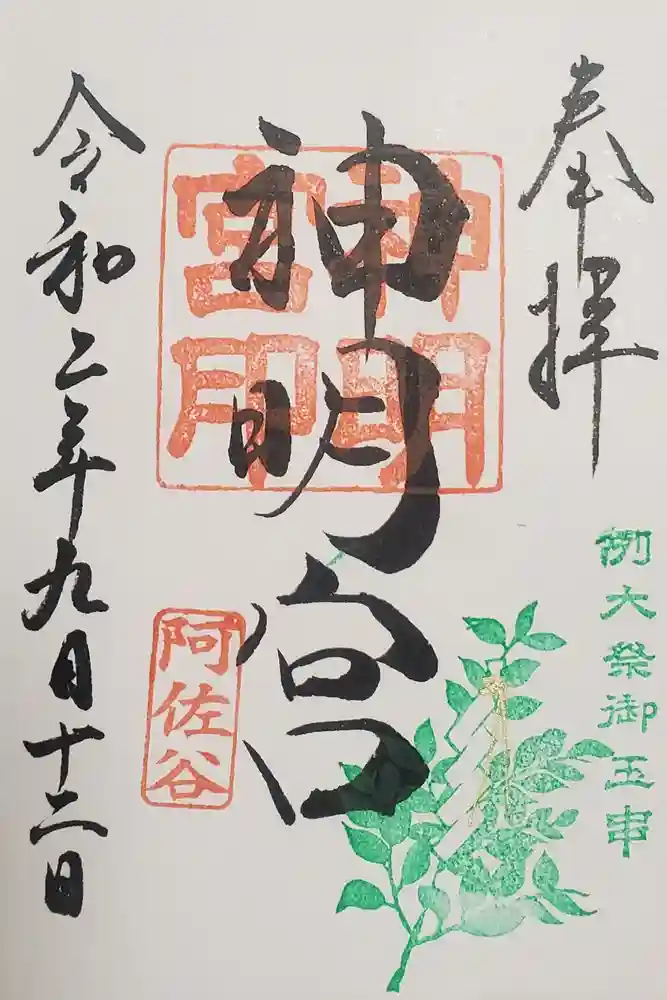 奉拝
例大祭御玉串
神明宮
神明
宮印
阿佐谷
令和二年九月十二日